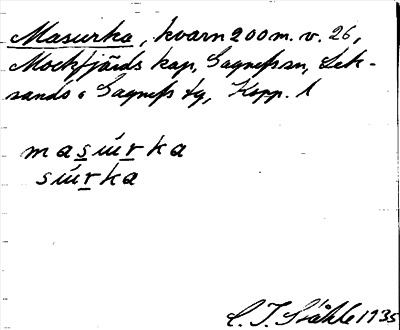 Masurka, kvarn 200 m. v. 26,
Mockfjärds kap, Gagnefs sn, Lek-
sands o Gagnefs tg, Kopp. l
masúrka
súrka
C. I. Ståhle 1935